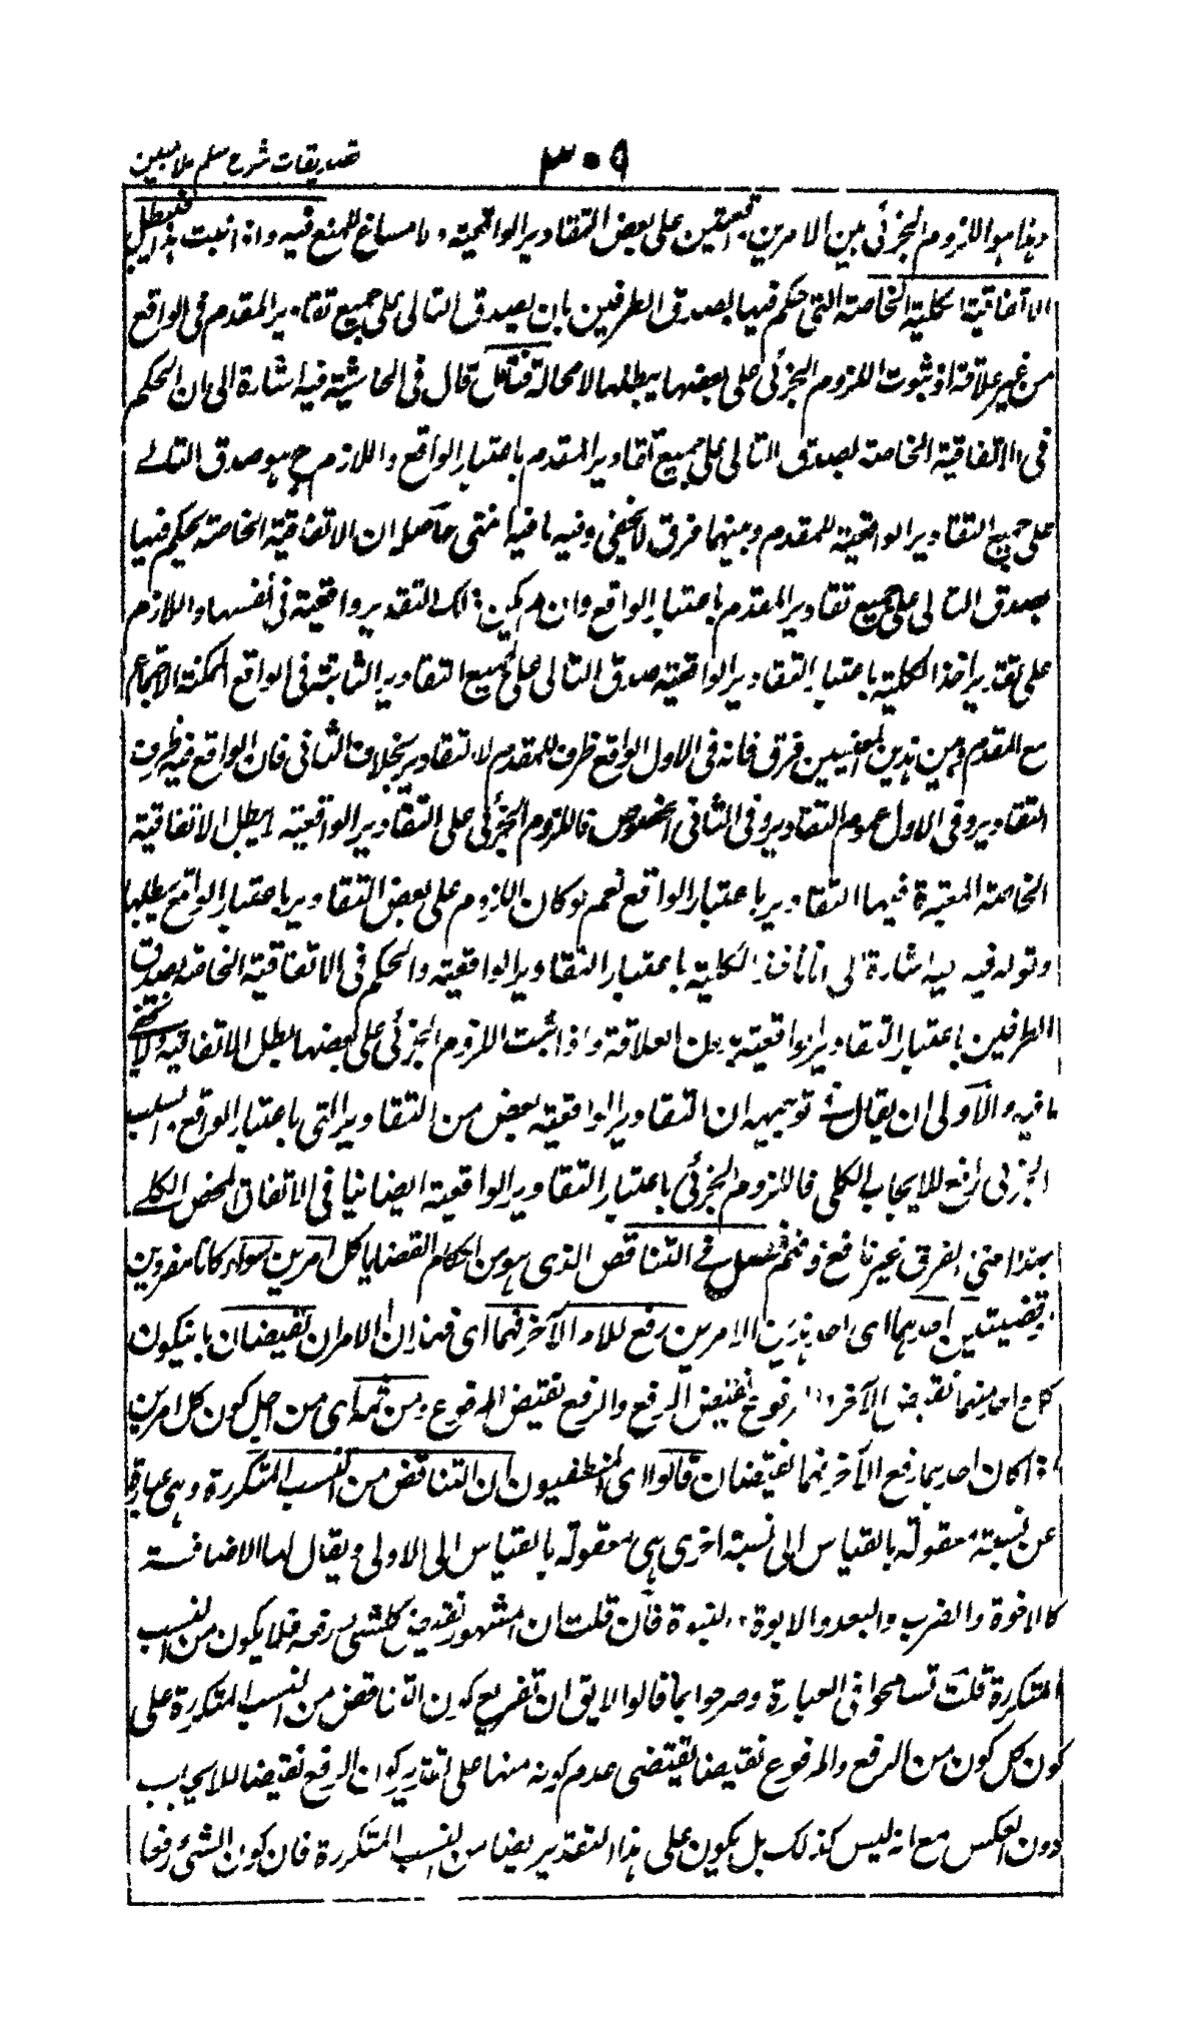 ٣٠٩
تصدیقات شرح سلم ملا مبین
وهذا هو اللزوم الجزئی بین الامرین المتحققین علی بعض التقادیر الواقعیة ولا مساغ للمنع فیه واذ اثبت هذا فیبطل
الاتفاقیة الکلیة الخاصة التی حکم فیها بصدق الطرفین بان یصدق التالی علی جمیع تقادیر المقدم فی الواقع
من غیر علاقة اذ ثبوت اللزوم الجزئی علی بعضها یبطلها لا محالة فتأمل قال فی الحاشیة فیه اشارة الی ان الحکم
فی الاتفاقیة الخاصة بصدق التالی علی جمیع تقادیر المقدم باعتبار الواقع واللازم ح هو صدق التالے
علی جمیع التقادیر الواقعیة للمقدم وبینهما فرق لا یخفی وفیه ما فیه انتهی حاصله ان الاتفاقیة الخاصة یحکم فیها
بصدق التالی علی جمیع تقادیر المقدم باعتبار الواقع وان لم یکن ذلک التقدیر واقعیة فی أنفسها واللازم
علی تقدیر اخذ الکلیة باعتبار التقادیر الواقعیة صدق التالی علی جمیع التقادیر الثابتة فی الواقع الممکنة الاجتماع
مع المقدم وبین هذین المعنیین فرق فانه فی الاول الواقع ظرف للمقدم لا التقادیر بخلاف الثانی فان الواقع فیه ظرف
التقادیر وفی الاول عموم التقادیر وفی الثانی الخصوص فاللزوم الجزئی علی التقادیر الواقعیة لم یبطل الاتفاقیة
الخاصة المعتبرة فیها التقادیر باعتبار الواقع نعم لو کان اللزوم علی بعض التقادیر باعتبار الواقع یبطلها
وقوله فیه فیه اشارة الی انا نأخذ الکلیة باعتبار التقادیر الواقعیة والحکم فی الاتفاقیة الخاصة بصدق
الطرفین باعتبار التقادیر الواقعیة بدون العلاقة واذا ثبت اللزوم الجزئی علی بعضها بطل الاتفاقیة ولا یخفے
ما فیه والأولی ان یقال فی توجیهه ان التقادیر الواقعیة بعض من التقادیر التی باعتبار الواقع والسلب
الجزئی رافع للایجاب الکلی فاللزوم الجزئی باعتبار التقادیر الواقعیة ایضا ینافی الاتفاق المحض الکلے
بهذا المعنی فالفرق غیر نافع فافهم فصل فی التناقض الذی هو من احکام القضایا کل امرین سواء کانا مفردین
او قضیتین احدهما ای احد هذین الامرین رفع للامر الآخر فهما ای فهذان الامران نقیضان بان یکون
کل واحد منهما نقیض الآخر المرفوع نقیض الرفع والرفع نقیض المرفوع ومن ثمه ای من اجل کون کل امرین
اذا کان احدهما رفع الآخر فهما نقیضان قالوا ای المنطقیون ان التناقض من النسب المتکررة وهی عبارة
عن نسبة معقولة بالقیاس الی نسبة اخری هی معقولة بالقیاس الی الاولی ویقال لها الاضافة
کالاخوة والقرب والبعد والابوة والبنوة فان قلت ان المشهور نقیض کل شئ رفعه فلما یکون من النسب
المتکررة قلت تسامحوا فی العبارة وصرحوا بما قالوا لا یق ان تفریع کون التناقض من النسب المتکررة علی
کون کل کون من الرفع والمرفوع نقیضا یقتضی عدم کونه منها علی تقدیر کون الرفع نقیضا للایجاب
دون العکس مع انه لیس کذلک بل یکون علی هذا التقدیر ایضا من النسب المتکررة فان کون الشئ رفعا